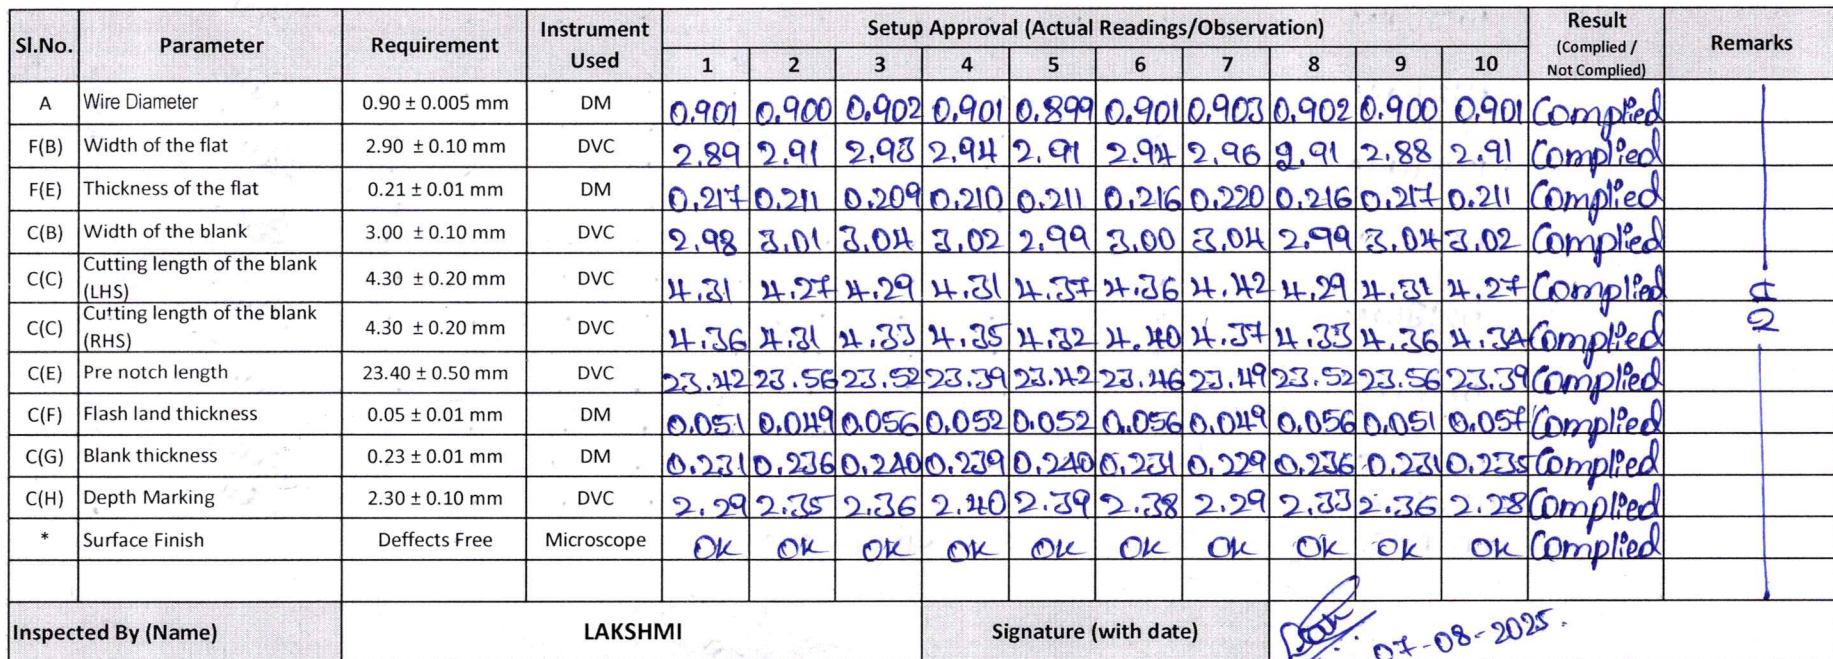 Sl.No. Parameter Requirement Instrument Used Setup Approval (Actual Readings/Observation) Result (Complied / Not Complied) Remarks
1 2 3 4 5 6 7 8 9 10
A Wire Diameter 0.90 ± 0.005 mm DM 0.901 0.900 0.902 0.901 0.899 0.901 0.903 0.902 0.900 0.901 Complied
F(B) Width of the flat 2.90 ± 0.10 mm DVC 2.89 2.91 2.93 2.94 2.91 2.94 2.96 2.91 2.88 2.91 Complied
F(E) Thickness of the flat 0.21 ± 0.01 mm DM 0.217 0.211 0.209 0.210 0.211 0.216 0.220 0.216 0.217 0.211 Complied
C(B) Width of the blank 3.00 ± 0.10 mm DVC 2.98 3.01 3.04 3.02 2.99 3.00 3.04 2.99 3.04 3.02 Complied
C(C) Cutting length of the blank (LHS) 4.30 ± 0.20 mm DVC 4.31 4.27 4.29 4.31 4.37 4.36 4.42 4.29 4.31 4.27 Complied
C(C) Cutting length of the blank (RHS) 4.30 ± 0.20 mm DVC 4.36 4.31 4.33 4.35 4.32 4.40 4.37 4.33 4.36 4.34 Complied
C(E) Pre notch length 23.40 ± 0.50 mm DVC 23.42 23.56 23.52 23.39 23.42 23.46 23.49 23.52 23.56 23.39 Complied
C(F) Flash land thickness 0.05 ± 0.01 mm DM 0.051 0.049 0.056 0.052 0.052 0.056 0.049 0.056 0.051 0.057 Complied
C(G) Blank thickness 0.23 ± 0.01 mm DM 0.231 0.236 0.240 0.239 0.240 0.231 0.229 0.236 0.231 0.235 Complied
C(H) Depth Marking 2.30 ± 0.10 mm DVC 2.29 2.35 2.36 2.40 2.39 2.38 2.29 2.33 2.36 2.28 Complied
* Surface Finish Deffects Free Microscope OK OK OK OK OK OK OK OK OK OK Complied
Inspected By (Name) LAKSHMI Signature (with date) 07-08-2025.